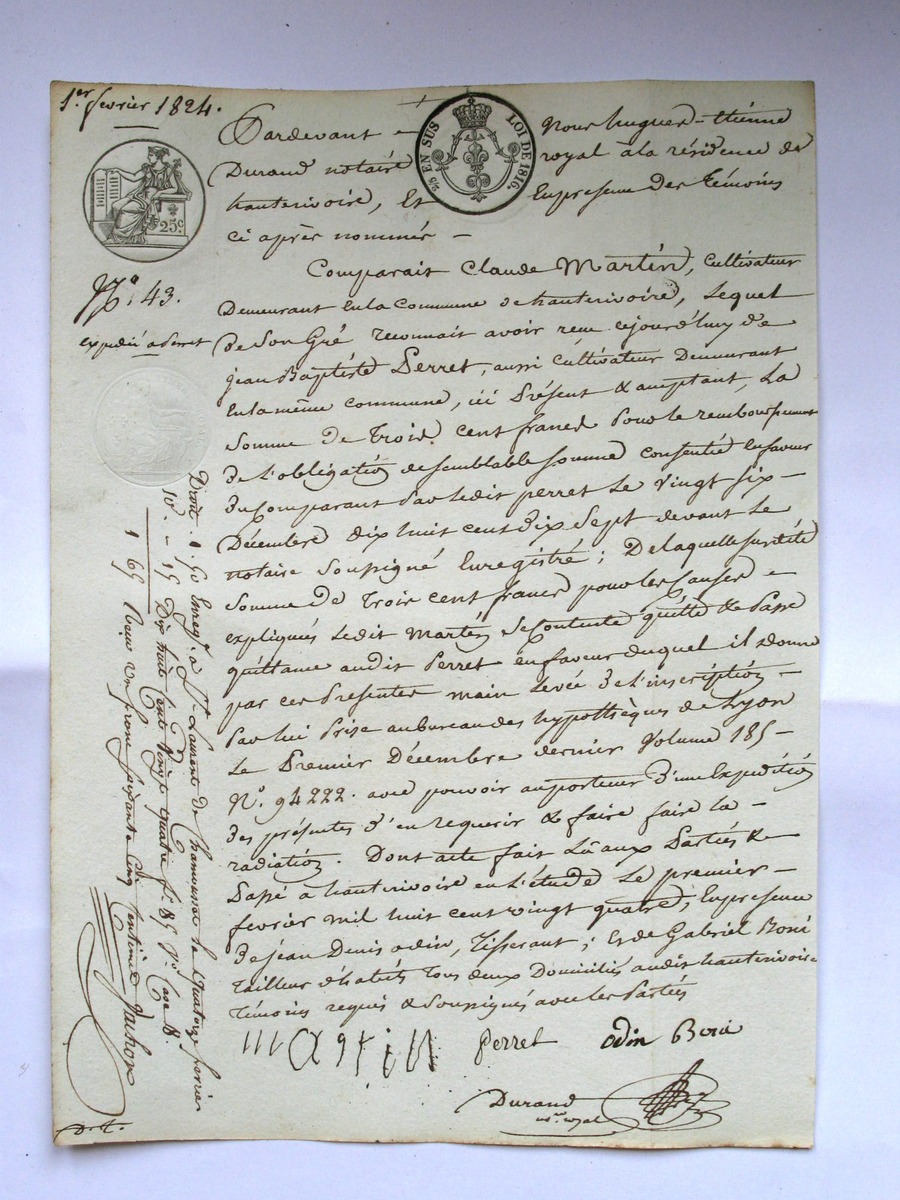 1.er fevrier 1824.
25c
25 EN SUS LOI DE 1816
N.o 43.
expedié a Perret
Pardevant – Nous hugues – Etienne
Durand notaire royal à la résidence de
hauterivoire, Et En presence des Témoins
ci après nommés –
Comparait Claude Martin, cultivateur
Demeurant En la commune de hauterivoire, Lequel
de Son Gré reconnait avoir recu cejourd'huy de
jean Baptiste Perret, aussi cultivateur Demeurant
En la même commune, ici Présent & acceptant, La
Somme De Trois cent francs Pour le remboursement
de L'obligation de semblable somme consentie En faveur
du Comparant Par ledit perret Le vingt six –
Décembre dix huit cent dix Sept devant Le
notaire Soussigné Enregistré; De laquelle susditte
Somme De Trois cent francs pour les Causes –
expliqués Ledit Martin Se Contente quitte & Passe
quittance audit Perret en faveur duquel il Donne
par ces Presentes main Levée de L'inscription –
Par lui Prise au bureau des hypothèques de Lyon
Le Premier Décembre dernier Volume 185 –
N.o 94222. avec pouvoir au porteur d'une Expedition
des présentes d'en requerir & faire faire la –
radiation. Dont acte fait Lû aux Parties &
Passé à hauterivoire en L'étude Le premier –
fevrier mil huit cent vingt quatre, En presence
de jean Denis odin, Tisserant; Et de Gabriel Boné
Tailleur d'habits Tous deux Domiciliés audit hauterivoire
Témoins requis & Soussignés avec les Parties
Martin Perret odin Boné
Durand
n.re royal
Droit. 1 50 Enreg.é à S.t Laurent de Chamousset le quatorze fevrier
10.e – 15 Dix huit Cent vingt quatre f.o 85 V.o Case 8.
1 65 Reçu un franc soixante Cinq Centimes